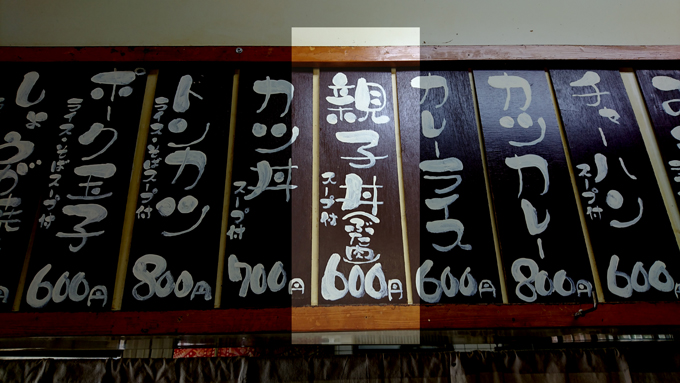 しょうが焼
ポーク玉子
ライス・そばスープ付
600円
トンカツ
ライス・そばスープ付
800円
カツ丼
スープ付
700円
親子丼(ぶた肉)
スープ付
600円
カレーライス
600円
カツカレー
800円
チャーハン
スープ付
600円